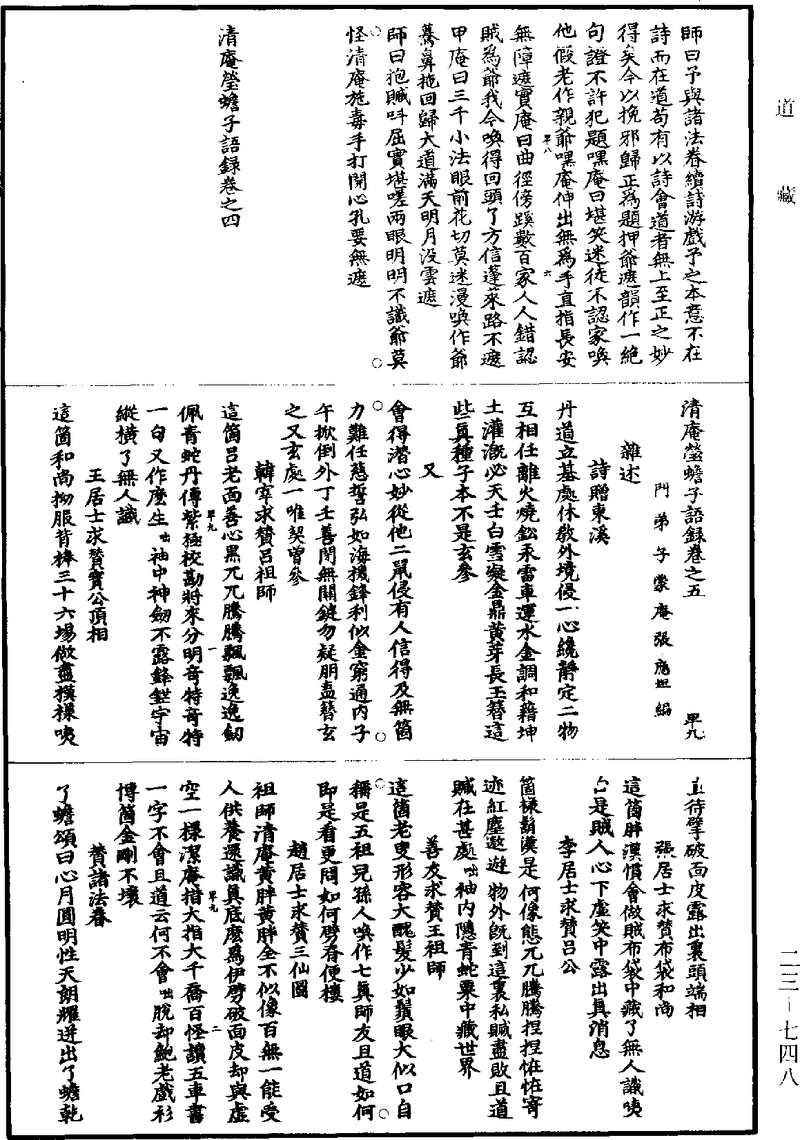 道藏
師曰予與諸法眷續詩游戲予之本意不在
詩而在道苟有以詩會道者無上至正之妙
得矣今以挽邪歸正為題押爺遮韻作一絕
句證不許犯題嘿庵曰堪笑迷徒不認家喚
他假老作親爺嘿庵伸出無為手直指長安
無障遮實庵曰曲徑傍蹊數百家人人錯認
賊為爺我今喚得回頭了方信蓬萊路不遮
甲庵曰三千小法眼前花切莫迷漫喚作爺
驀鼻拖回歸大道滿天明月沒雲遮
師曰抱贓叫屈實堪嗟兩眼明明不識爺莫
怪清庵施毒手打開心孔要無遮
清庵瑩蟾子語録卷之四
卑八
六
清庵瑩蟾子語録卷之五
卑九
門弟子蒙庵張應坦編
雜述
詩贈東溪
丹道立基處休教外境侵一心纔靜定二物
互相任離火燒鈆汞雷車運水金調和藉坤
土灌溉必天壬白雪凝金鼎黃芽長玉簪這
些真種子本不是玄參
又
會得潛心妙從他二鼠侵有人信得及無箇
力難任慈誓弘如海機鋒利似金窮通內子
午掀倒外丁壬善閉無關鍵勿疑朋盍簪玄
之又玄處一唯契曾參
韓宰求贊呂祖師
這箇呂老面善心黑兀兀騰騰飄飄逸逸劒
佩青蛇丹傳紫極校勘將來分明奇特奇特
卑九
一
一句又作麼生咄袖中神劒不露鋒鋩宇宙
縱橫了無人識
王居士求贊寶公頂相
這箇和尚拗服背棒三十六場做盡模樣咦
直待擘破面皮露出裏頭端相
張居士求贊布袋和尚
這箇胖漢慣會做賊布袋中藏了無人識咦
台是賊人心下虛笑中露出真消息
李居士求贊呂公
箇樣鬍漢是何像態兀兀騰騰捏捏恠恠寄
迹紅塵遨遊物外既到這裏私贓盡敗且道
贓在甚處咄袖內隱青蛇粟中藏世界
善友求贊王祖師
這箇老叟形容大醜髮少如鬚眼大似口自
稱是五祖兒孫人喚作七真師友且道如何
即是看更問如何劈脊便摟
趙居士求贊三仙圖
祖師清庵黃胖黃胖全不似像百無一能受
人供養還識真底麼為伊劈破面皮却與虛
空一樣潔庵指大指大千喬百怪讀五車書
卑九
二
一字不會且道云何不會咄脫却鮑老戲衫
博箇金剛不壞
贊諸法眷
了蟾頌曰心月圓明性天朗耀迸出了蟾乾
二三－七四八